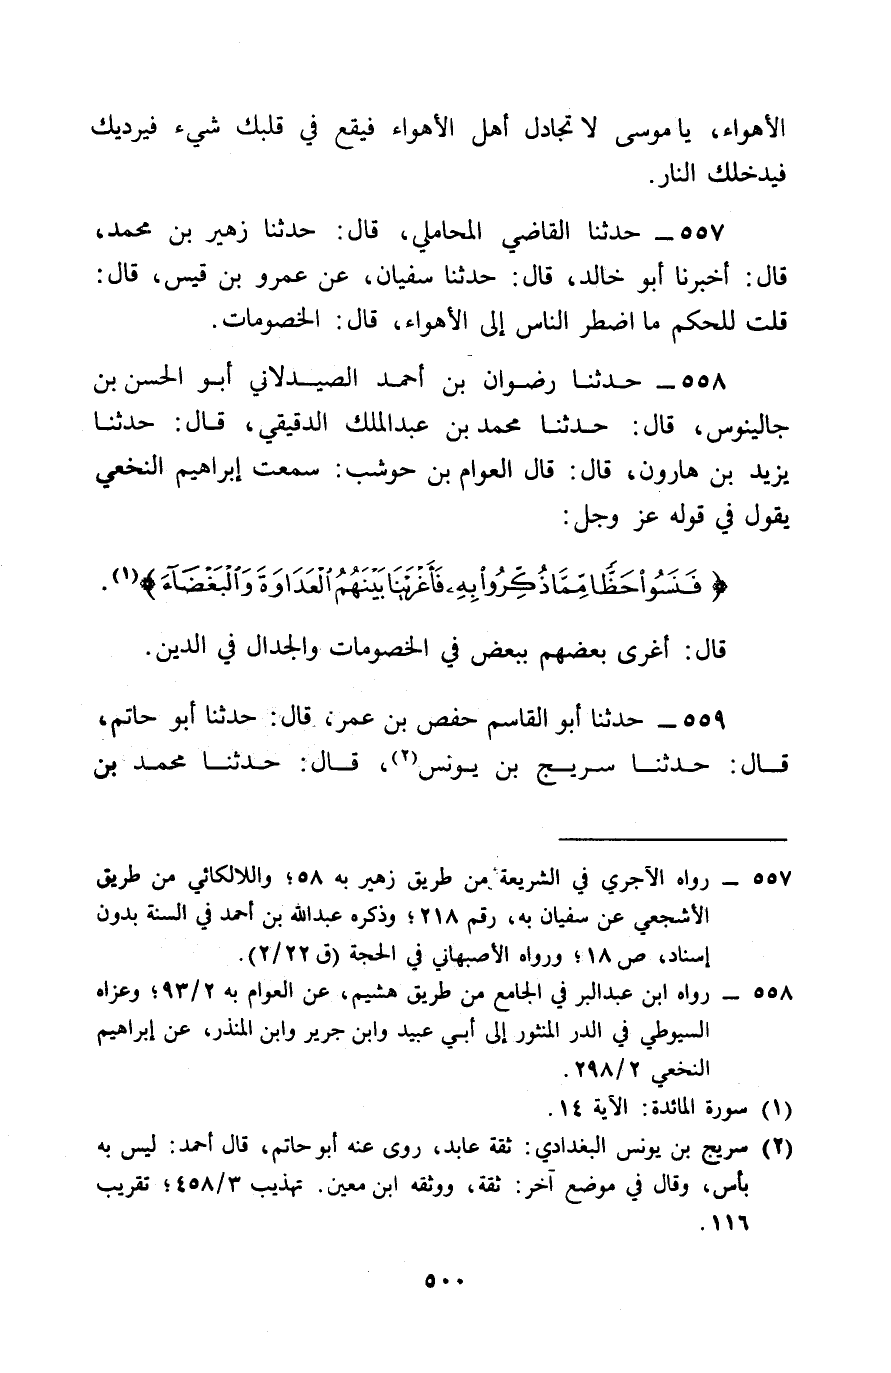 الأهواء، يا موسى لا تجادل أهل الأهواء فيقع في قلبك شيء فيرديك
فيدخلك النار.
٥٥٧ ــ حدثنا القاضي المحاملي، قال: حدثنا زهير بن محمد،
قال: أخبرنا أبو خالد، قال: حدثنا سفيان، عن عمرو بن قيس، قال:
قلت للحكم ما اضطر الناس إلى الأهواء، قال: الخصومات.
٥٥٨ ــ حدثنا رضوان بن أحمد الصيدلاني أبو الحسن بن
جالينوس، قال: حدثنا محمد بن عبدالملك الدقيقي، قال: حدثنا
يزيد بن هارون، قال: قال العوام بن حوشب: سمعت إبراهيم النخعي
يقول في قوله عز وجل:
﴿ فَنَسُوا۟ حَظًّا مِّمَّا ذُكِّرُوا۟ بِهِۦ فَأَغْرَيْنَا بَيْنَهُمُ ٱلْعَدَاوَةَ وَٱلْبَغْضَآءَ ﴾(١).
قال: أغرى بعضهم ببعض في الخصومات والجدال في الدين.
٥٥٩ ــ حدثنا أبو القاسم حفص بن عمر، قال: حدثنا أبو حاتم،
قال: حدثنا سريج بن يونس(٢)، قال: حدثنا محمد بن
٥٥٧ ــ رواه الآجري في الشريعة من طريق زهير به ٥٨؛ واللالكائي من طريق
الأشجعي عن سفيان به، رقم ٢١٨؛ وذكره عبدالله بن أحمد في السنة بدون
إسناد، ص ١٨؛ ورواه الأصبهاني في الحجة (ق ٢/٢٢).
٥٥٨ ــ رواه ابن عبدالبر في الجامع من طريق هشيم، عن العوام به ٩٣/٢؛ وعزاه
السيوطي في الدر المنثور إلى أبي عبيد وابن جرير وابن المنذر، عن إبراهيم
النخعي ٢٩٨/٢.
(١) سورة المائدة: الآية ١٤.
(٢) سريج بن يونس البغدادي: ثقة عابد، روى عنه أبو حاتم، قال أحمد: ليس به
بأس، وقال في موضع آخر: ثقة، ووثقه ابن معين. تهذيب ٤٥٨/٣؛ تقريب
١١٦.
٥٠٠